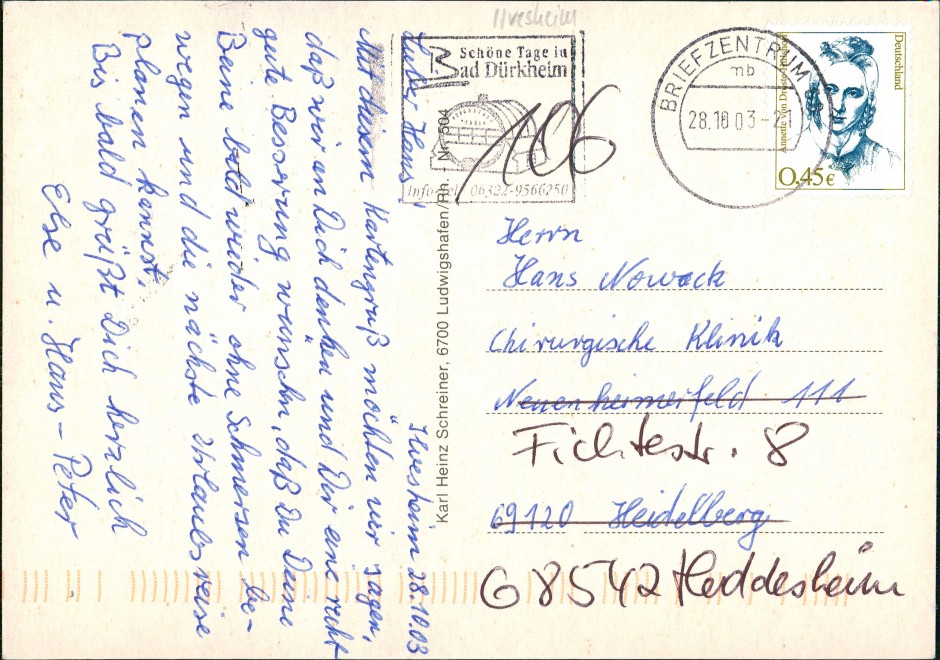 Ilvesheim
Ilvesheim 28.10.03
Lieber Hans!
Mit diesem Kartengruß möchten wir sagen,
daß wir an Dich denken und Dir eine recht
gute Besserung wünschn, daß Du Deine
Beine bald wieder ohne Schmerzen be-
wegen und die nächste Urlaubsreise
planen kannst.
Bis bald grüßt Dich herzlich
Else u. Hans-Peter
Karl Heinz Schreiner, 6700 Ludwigshafen/Rh. - Nr. 7504
Schöne Tage in
Bad Dürkheim
Info-Tel. 06322-9566250
106
BRIEFZENTRUM
mb
28.10.03-21
Deutschland
Annette von Droste-Hülshoff
0,45€
Herrn
Hans Nowack
Chirurgische Klinik
Neuenheimerfeld 111
Fichtestr. 8
69120 Heidelberg
68542 Heddesheim